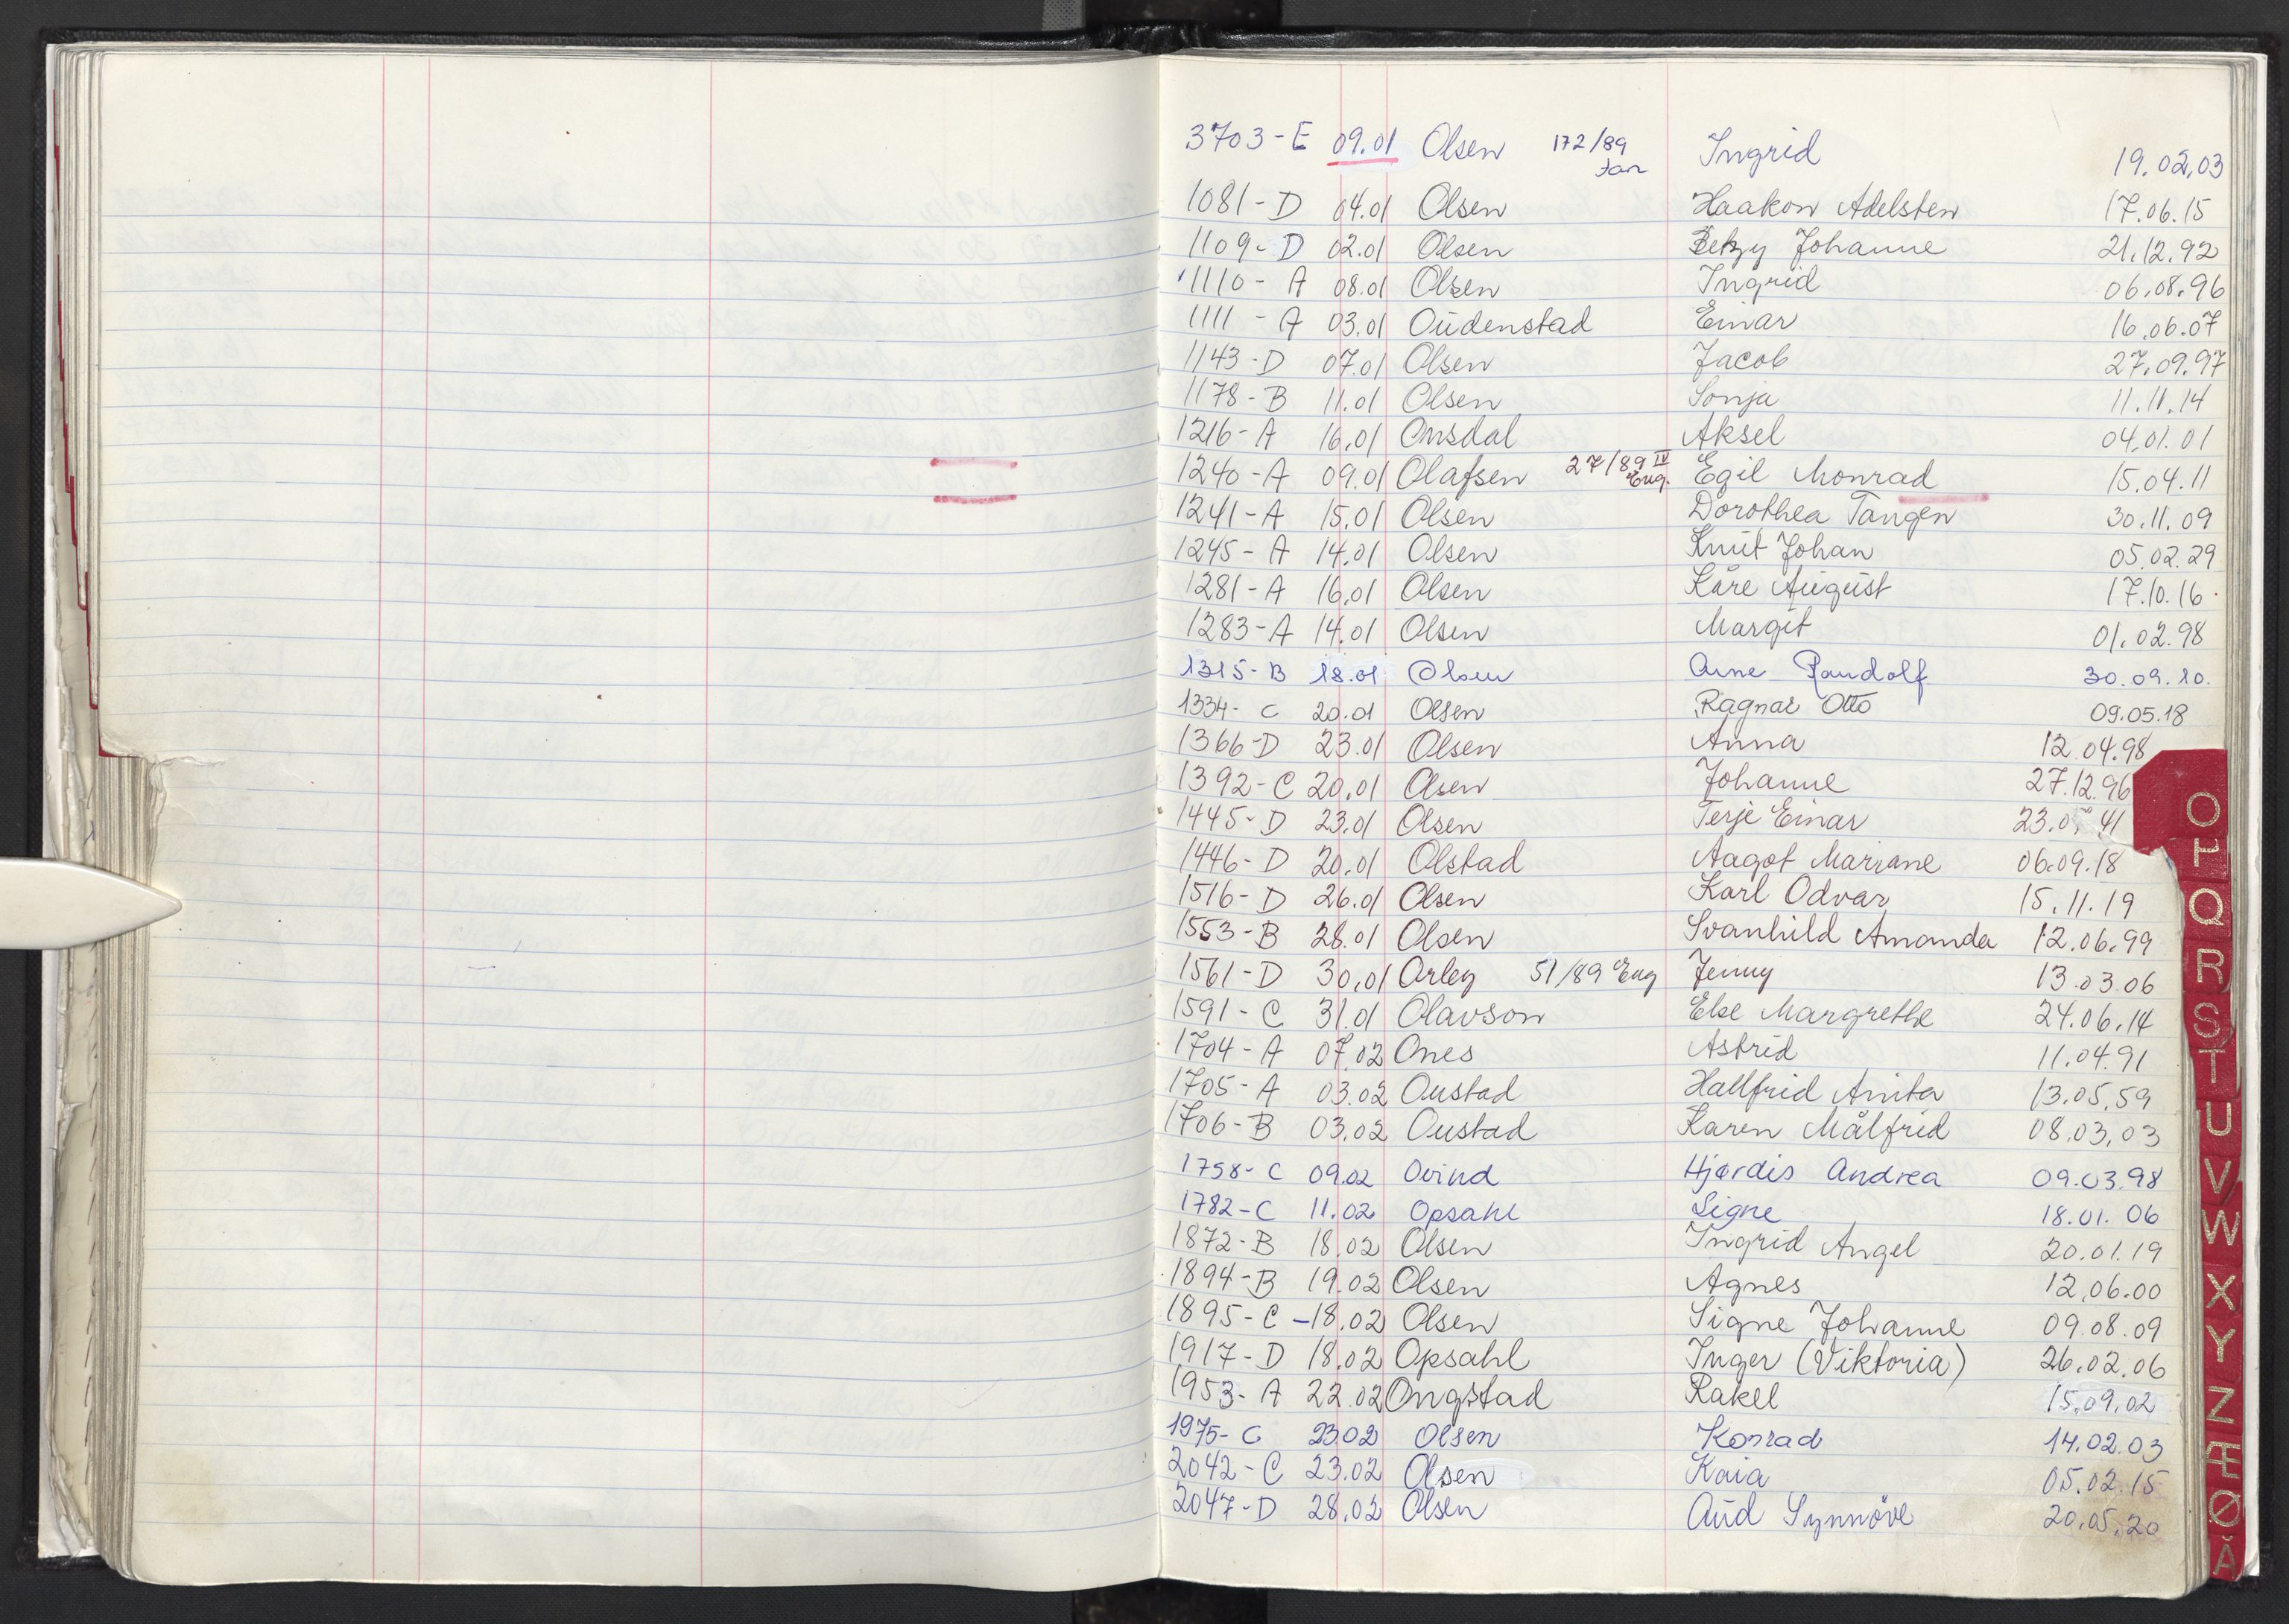 3703-E 09.01 Olsen 172/89 Jan Ingrid 19.02.03
1081-D 04.01 Olsen Haakon Adelsten 17.06.15
1109-D 02.01 Olsen Betzy Johanne 21.12.92
1110-A 08.01 Olsen Ingrid 06.08.96
1111-A 03.01 Oudenstad Einar 16.06.07
1143-D 07.01 Olsen Jacob 27.09.97
1178-B 11.01 Olsen Sonja 11.11.14
1216-A 16.01 Omsdal Aksel 04.01.01
1240-A 09.01 Olafsen 27/89 IV Eng. Egil Monrad 15.04.11
1241-A 15.01 Olsen Dorothea Tangen 30.11.09
1245-A 14.01 Olsen Knut Johan 05.02.29
1281-A 16.01 Olsen Kåre August 17.10.16
1283-A 14.01 Olsen Margit 01.02.98
1315-B 18.01 Olsen Arne Randolf 30.09.10.
1334-C 20.01 Olsen Ragnar Otto 09.05.18
1366-D 23.01 Olsen Anna 12.04.98
1392-C 20.01 Olsen Johanne 27.12.96
1445-D 23.01 Olsen Terje Einar 41
1446-D 20.01 Olstad Aagot Mariane 06.09.18
1516-D 26.01 Olsen Karl Odvar 15.11.19
1553-B 28.01 Olsen Svanhild Amanda 12.06.99
1561-D 30.01 Orley 51/89 Eng Jenny 13.03.06
1591-C 31.01 Olavson Else Margrethe 24.06.14
1704-A 07.02 Ones Astrid 11.04.91
1705-A 03.02 Oustad Hallfrid Anita 13.05.59
1706-B 03.02 Oustad Karen Målfrid 08.03.03
1758-C 09.02 Ovind Hjørdis Andrea 09.03.98
1782-C 11.02 Opsahl Signe 18.01.06
1872-B 18.02 Olsen Ingrid Angel 20.01.19
1894-B 19.02 Olsen Agnes 12.06.00
1895-C -18.02 Olsen Signe Johanne 09.08.09
1917-D 18.02 Opsahl Inger (Viktoria) 26.02.06
1953-A 22.02 Ongstad Rakel 15.09.02
1975-C 2302 Olsen Konrad 14.02.03
2042-C 23.02 Olsen Kaia 05.02.15
2047-D 28.02 Olsen Aud Synnöve 20.05.20
O
P
Q
R
S
T
U
V
W
X
Y
Z
Æ
Ø
Å